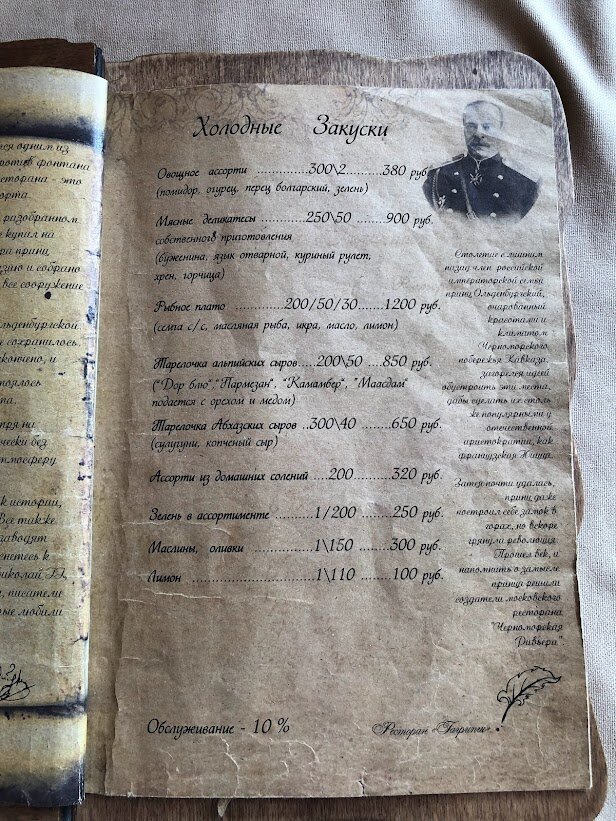 ся одним из
ротив фонтана
сторана - это
орта.
разобранном
е купил на
ра принц
зию и собрано
все сооружение
льденбургской.
е сохранилось.
кончено, и
тоялось
та.
тря на
чески без
тмосферу
к истории,
Все также
заводят
снетесь к
иколай II,
и, писатели
рые любили
Холодные Закуски
Овощное ассорти ..............300\2..........380 руб.
(помидор, огурец, перец болгарский, зелень)
Мясные деликатесы ............250\50 .........900 руб.
собственного приготовления
(буженина, язык отварной, куриный рулет,
хрен, горчица)
Рыбное плато ..............200/50/30.......1200 руб.
(семга с/с, масляная рыба, икра, масло, лимон)
Тарелочка альпийских сыров.....200\50 ....850 руб.
("Дор блю","Пармезан", "Камамбер", "Маасдам"
подается с орехом и медом)
Тарелочка Абхазских сыров ..300\40 ........650 руб.
(сулугуни, копченый сыр)
Ассорти из домашних солений ....200.........320 руб.
Зелень в ассортименте ...........1/200 .......250 руб.
Маслины, оливки ...............1\150 ........300 руб.
Лимон ...............................1\110 ........100 руб.
Обслуживание - 10 %
Столетие с лишним
назад член российской
императорской семьи
принц Ольденбургский,
очарованный
красотами и
климатом
Черноморского
побережья Кавказа,
загорелся идеей
обустроить эти места,
дабы сделать их столь
же популярными у
отечественной
аристократии, как
французская Ницца.
Затея почти удалась,
принц даже
построил себе замок в
горах, но вскоре
грянула революция.
Прошел век, и
напомнить о замысле
принца решили
создатели московского
ресторана
"Черноморская
Ривьера".
Ресторан «Гагрипш»